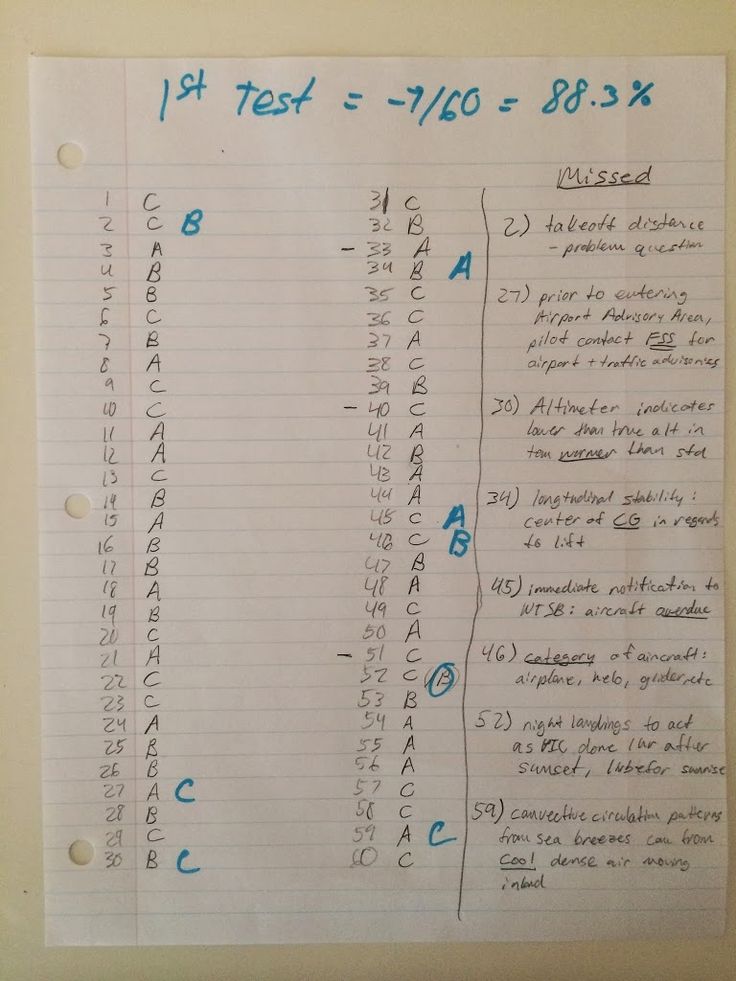 1st Test = -7/60 = 88.3%
1 C
2 C B
3 A
4 B
5 B
6 C
7 B
8 A
9 C
10 C
11 A
12 A
13 C
14 B
15 A
16 B
17 B
18 A
19 B
20 C
21 A
22 C
23 C
24 A
25 B
26 B
27 A C
28 B
29 C
30 B C
31 C
32 B
- 33 A
34 B A
35 C
36 C
37 A
38 C
39 B
- 40 C
41 A
42 B
43 A
44 A
45 C A
46 C B
47 B
48 A
49 C
50 A
- 51 C
52 C (B)
53 B
54 A
55 A
56 A
57 C
58 C
59 A C
60 C
Missed
2) takeoff distance
- problem question
27) prior to entering
Airport Advisory Area,
pilot contact FSS for
airport + traffic advisories
30) Altimeter indicates
lower than true alt in
warmer than std
34) longitudinal stability:
center of CG in regards
to lift
45) immediate notification to
NTSB: aircraft overdue
46) category of aircraft:
airplane, helo, glider, etc
52) night landings to act
as PIC done 1hr after
sunset, 1hr befor sunrise
59) convective circulation patterns
from sea breezes can from
cool dense air moving
inland